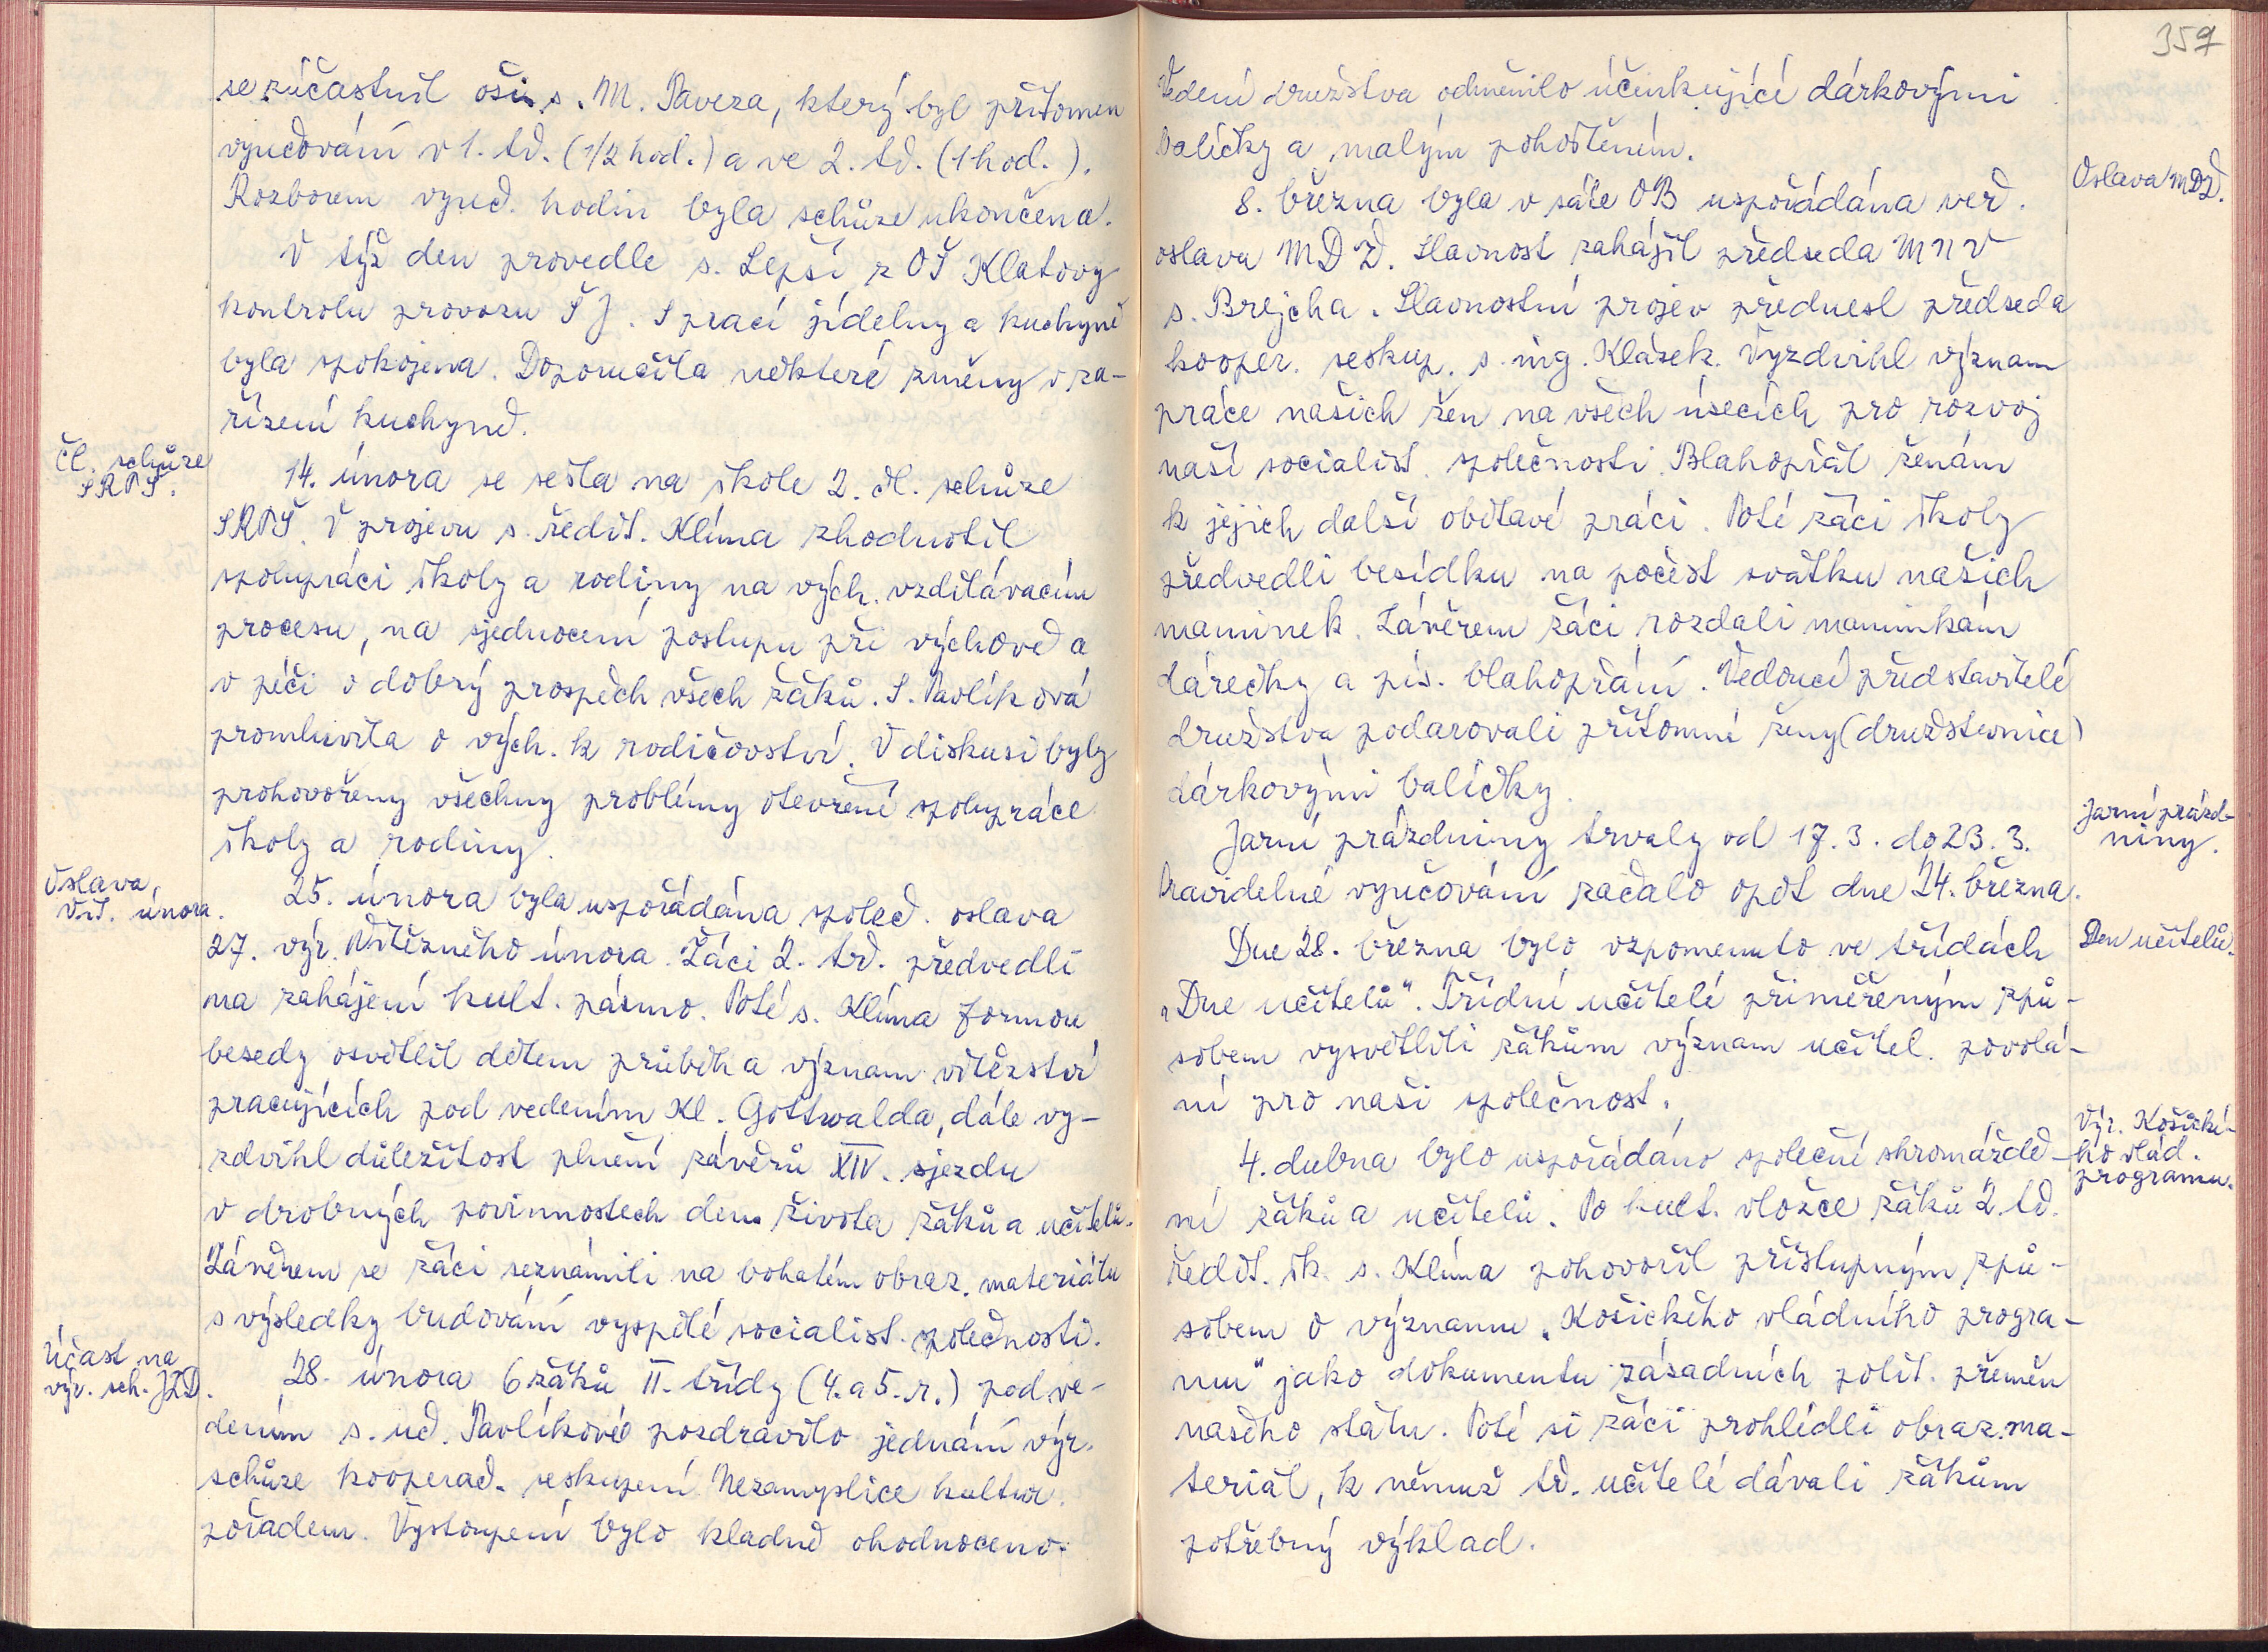 se zúčastnil oši s. M. Paveza, který byl přítomen
vyučování v 1. tř. (1/2 hod.) a ve 2. tř. (1 hod.).
Rozborem vyuč. hodin byla schůze ukončena.
V týž den provedle s. Lepší z OŠ Klatovy
kontrolu provozu ŠJ. S prací jídelny a kuchyně
byla spokojena. Doporučila některé změny v za-
řízení kuchyně.
Čl. schůze
SRPŠ.
14. února se sešla na škole 2. čl. schůze
SRPŠ. V projevu s. ředit. Klíma zhodnotil
spolupráci školy a rodiny na vých. vzdělávacím
procesu, na sjednocení postupu při výchově a
v péči o dobrý prospěch všech žáků. S. Pavlíková
promluvila o vých. k rodičovství. V diskusi byly
prohovořeny všechny problémy otevřené spolupráce
školy a rodiny.
Oslava
Vít. února.
25. února byla uspořádána společ. oslava
27. výr. Vítězného února. Žáci 2. tř. předvedli
na zahájení kult. pásmo. Poté s. Klíma formou
besedy osvětlil dětem průběh a význam vítězství
pracujících pod vedením Kl. Gottwalda, dále vy-
zdvihl důležitost plnění závěrů XIV. sjezdu
v drobných povinnostech den. života žáků a učitelů.
Závěrem se žáci seznámili na bohatém obraz. materiálu
s výsledky budování vyspělé socialist. společnosti.
Účast na
výr. sch. JZD.
28. února 6 žáků II. třídy (4. a 5. r.) pod ve-
dením s. uč. Pavlíkové pozdravilo jednání výr.
schůze kooperač. seskupení Nezamyslice kultur.
pořadem. Vystoupení bylo kladně ohodnoceno.
359
Vedení družstva odměnilo účinkující dárkovými
balíčky a malým pohoštěním.
Oslava MDŽ.
8. března byla v sále OB uspořádána veř.
oslava MDŽ. Slavnost zahájil předseda MNV
s. Brejcha. Slavnostní projev přednesl předseda
kooper. seskup. s. ing. Klásek. Vyzdvihl význam
práce našich žen na všech úsecích pro rozvoj
naší socialist. společnosti. Blahopřál ženám
k jejich další obětavé práci. Poté žáci školy
předvedli besídku na počest svátku našich
maminek. Závěrem žáci rozdali maminkám
dárečky a pís. blahopřání. Vedoucí představitelé
družstva podarovali přítomné ženy (družstevnice)
dárkovými balíčky.
Jarní prázd-
niny.
Jarní prázdniny trvaly od 17. 3. do 23. 3.
Pravidelné vyučování začalo opět dne 24. března.
Den učitelů.
Dne 28. března bylo vzpomenuto ve třídách
„Dne učitelů". Třídní učitelé přiměřeným způ-
sobem vysvětlili žákům význam učitel. povolá-
ní pro naši společnost.
Výr. Košické-
ho vlád.
programu.
4. dubna bylo uspořádáno společné shromáždě-
ní žáků a učitelů. Po kult. vložce žáků 2. tř.
ředit. šk. s. Klíma pohovořil přístupným způ-
sobem o významu „Košického vládního progra-
mu" jako dokumentu zásadních polit. přeměn
našeho státu. Poté si žáci prohlédli obraz. ma-
teriál, k němuž tř. učitelé dávali žákům
potřebný výklad.